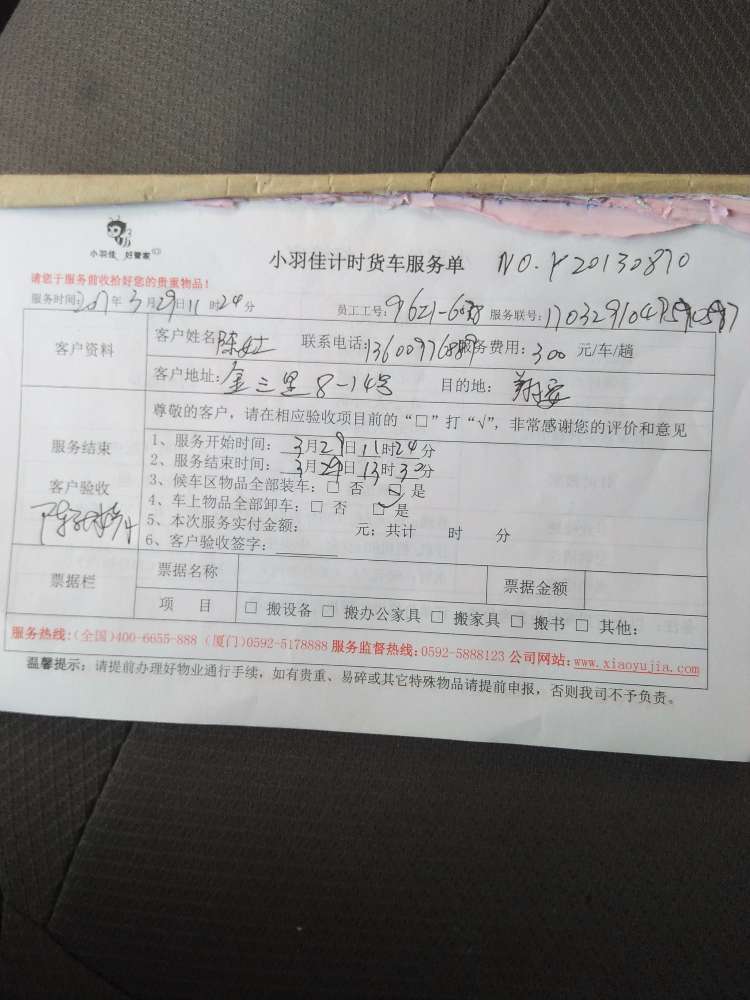 小羽佳 好管家
小羽佳计时货车服务单 NO.Y20130870
请您于服务前收拾好您的贵重物品!
服务时间: 年 3月29日11时24分 员工工号: 服务联号:
客户资料 客户姓名: 陈女士 联系电话: 服务费用: 300 元/车/趟
客户地址: 金三里8-14号 目的地: 翔安
尊敬的客户,请在相应验收项目前的“□”打“√”,非常感谢您的评价和意见
服务结束
客户验收
1、服务开始时间: 3月29日11时24分
2、服务结束时间: 3月29日13时30分
3、候车区物品全部装车:□ 否 □ 是
4、车上物品全部卸车:□ 否 □ 是
5、本次服务实付金额: 元;共计 时 分
6、客户验收签字:
票据栏 票据名称 票据金额
项 目 □ 搬设备 □ 搬办公家具 □ 搬家具 □ 搬书 □ 其他:
服务热线:(全国)400-6655-888 (厦门)0592-5178888 服务监督热线:0592-5888123 公司网站:www.xiaoyujia.com
温馨提示:请提前办理好物业通行手续,如有贵重、易碎或其它特殊物品请提前申报,否则我司不予负责。